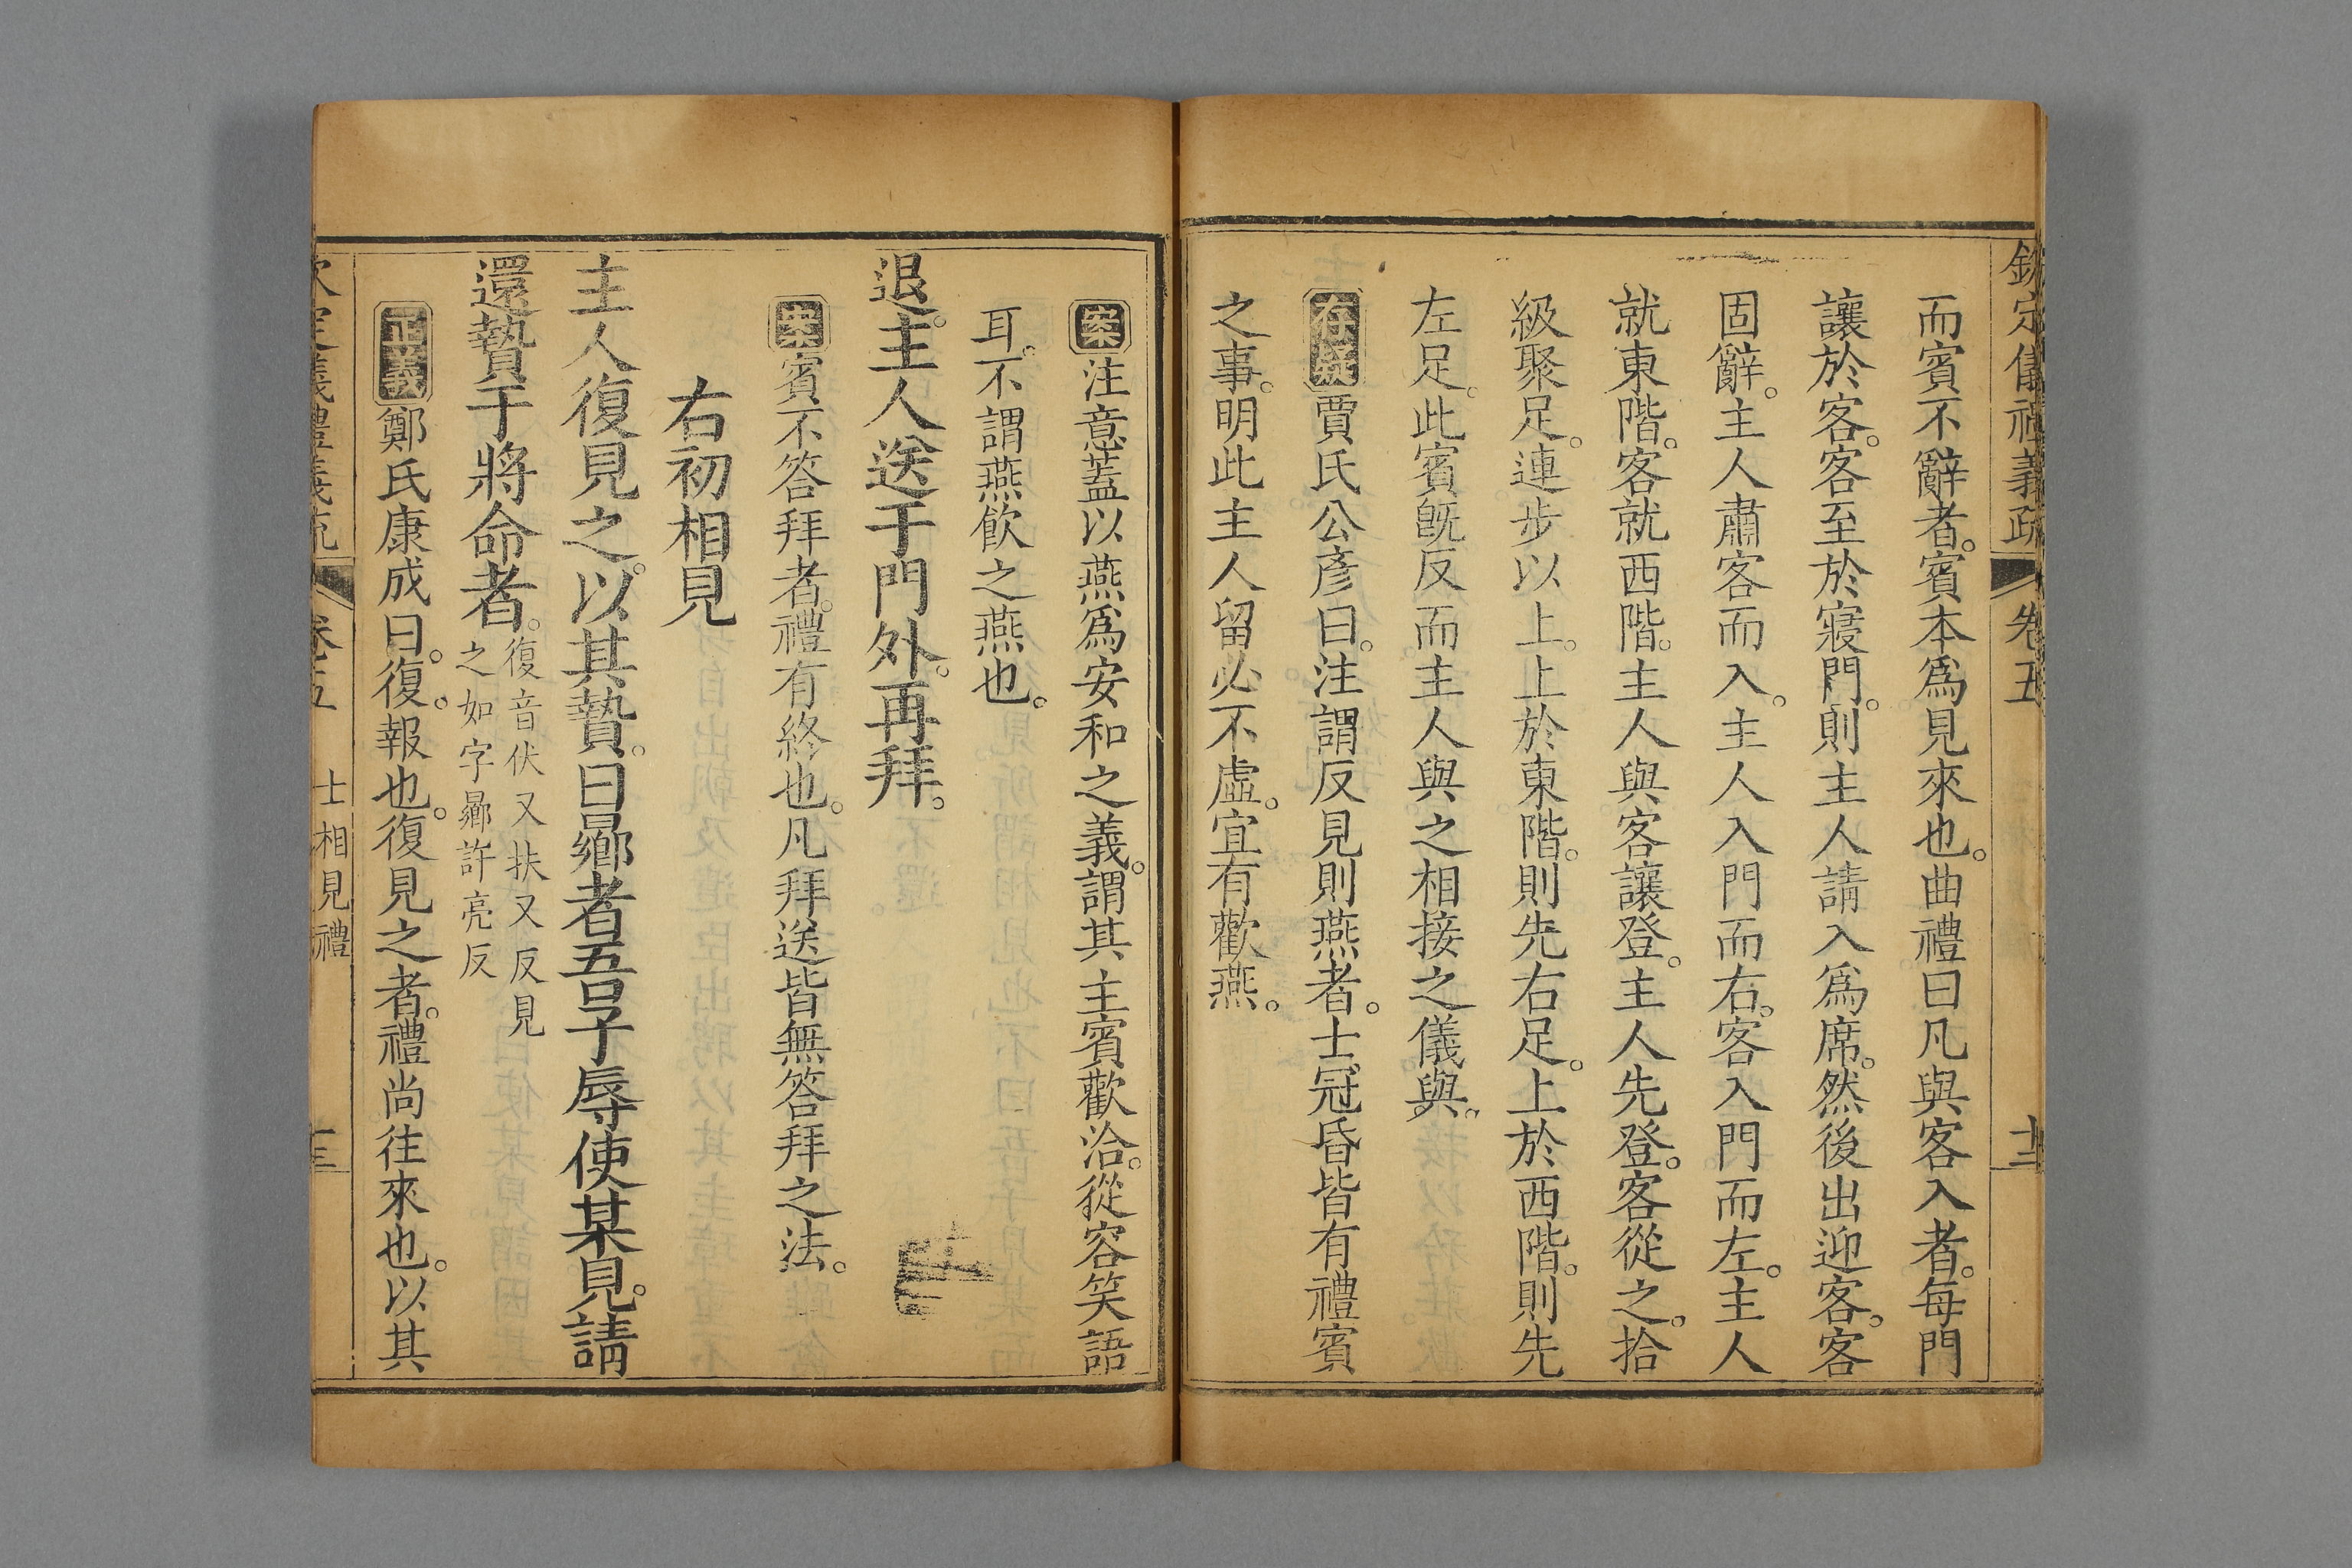 欽定儀禮義疏 卷五 十二
而賓不辭者。賓本爲見來也。曲禮曰凡與客入者。每門
讓於客。客至於寢門。則主人請入爲席。然後出迎客。客
固辭。主人肅客而入。主人入門而右。客入門而左。主人
就東階。客就西階。主人與客讓登。主人先登。客從之。拾
級聚足。連步以上。上於東階。則先右足。上於西階。則先
左足。此賓旣反而主人與之相接之儀與。
存疑賈氏公彥曰。注謂反見則燕者。士冠昏皆有禮賓
之事。明此主人留必不虛。宜有歡燕。
案注意蓋以燕爲安和之義。謂其主賓歡洽。從容笑語
耳。不謂燕飮之燕也。
退。主人送于門外。再拜。
案賓不答拜者。禮有終也。凡拜送皆無答拜之法。
右初相見
主人復見之。以其贄。曰曏者吾子辱使某見。請
還贄于將命者。
復音伏又扶又反見
之如字曏許亮反
正義鄭氏康成曰。復。報也。復見之者。禮尚往來也。以其
欽定儀禮義疏 卷五 士相見禮